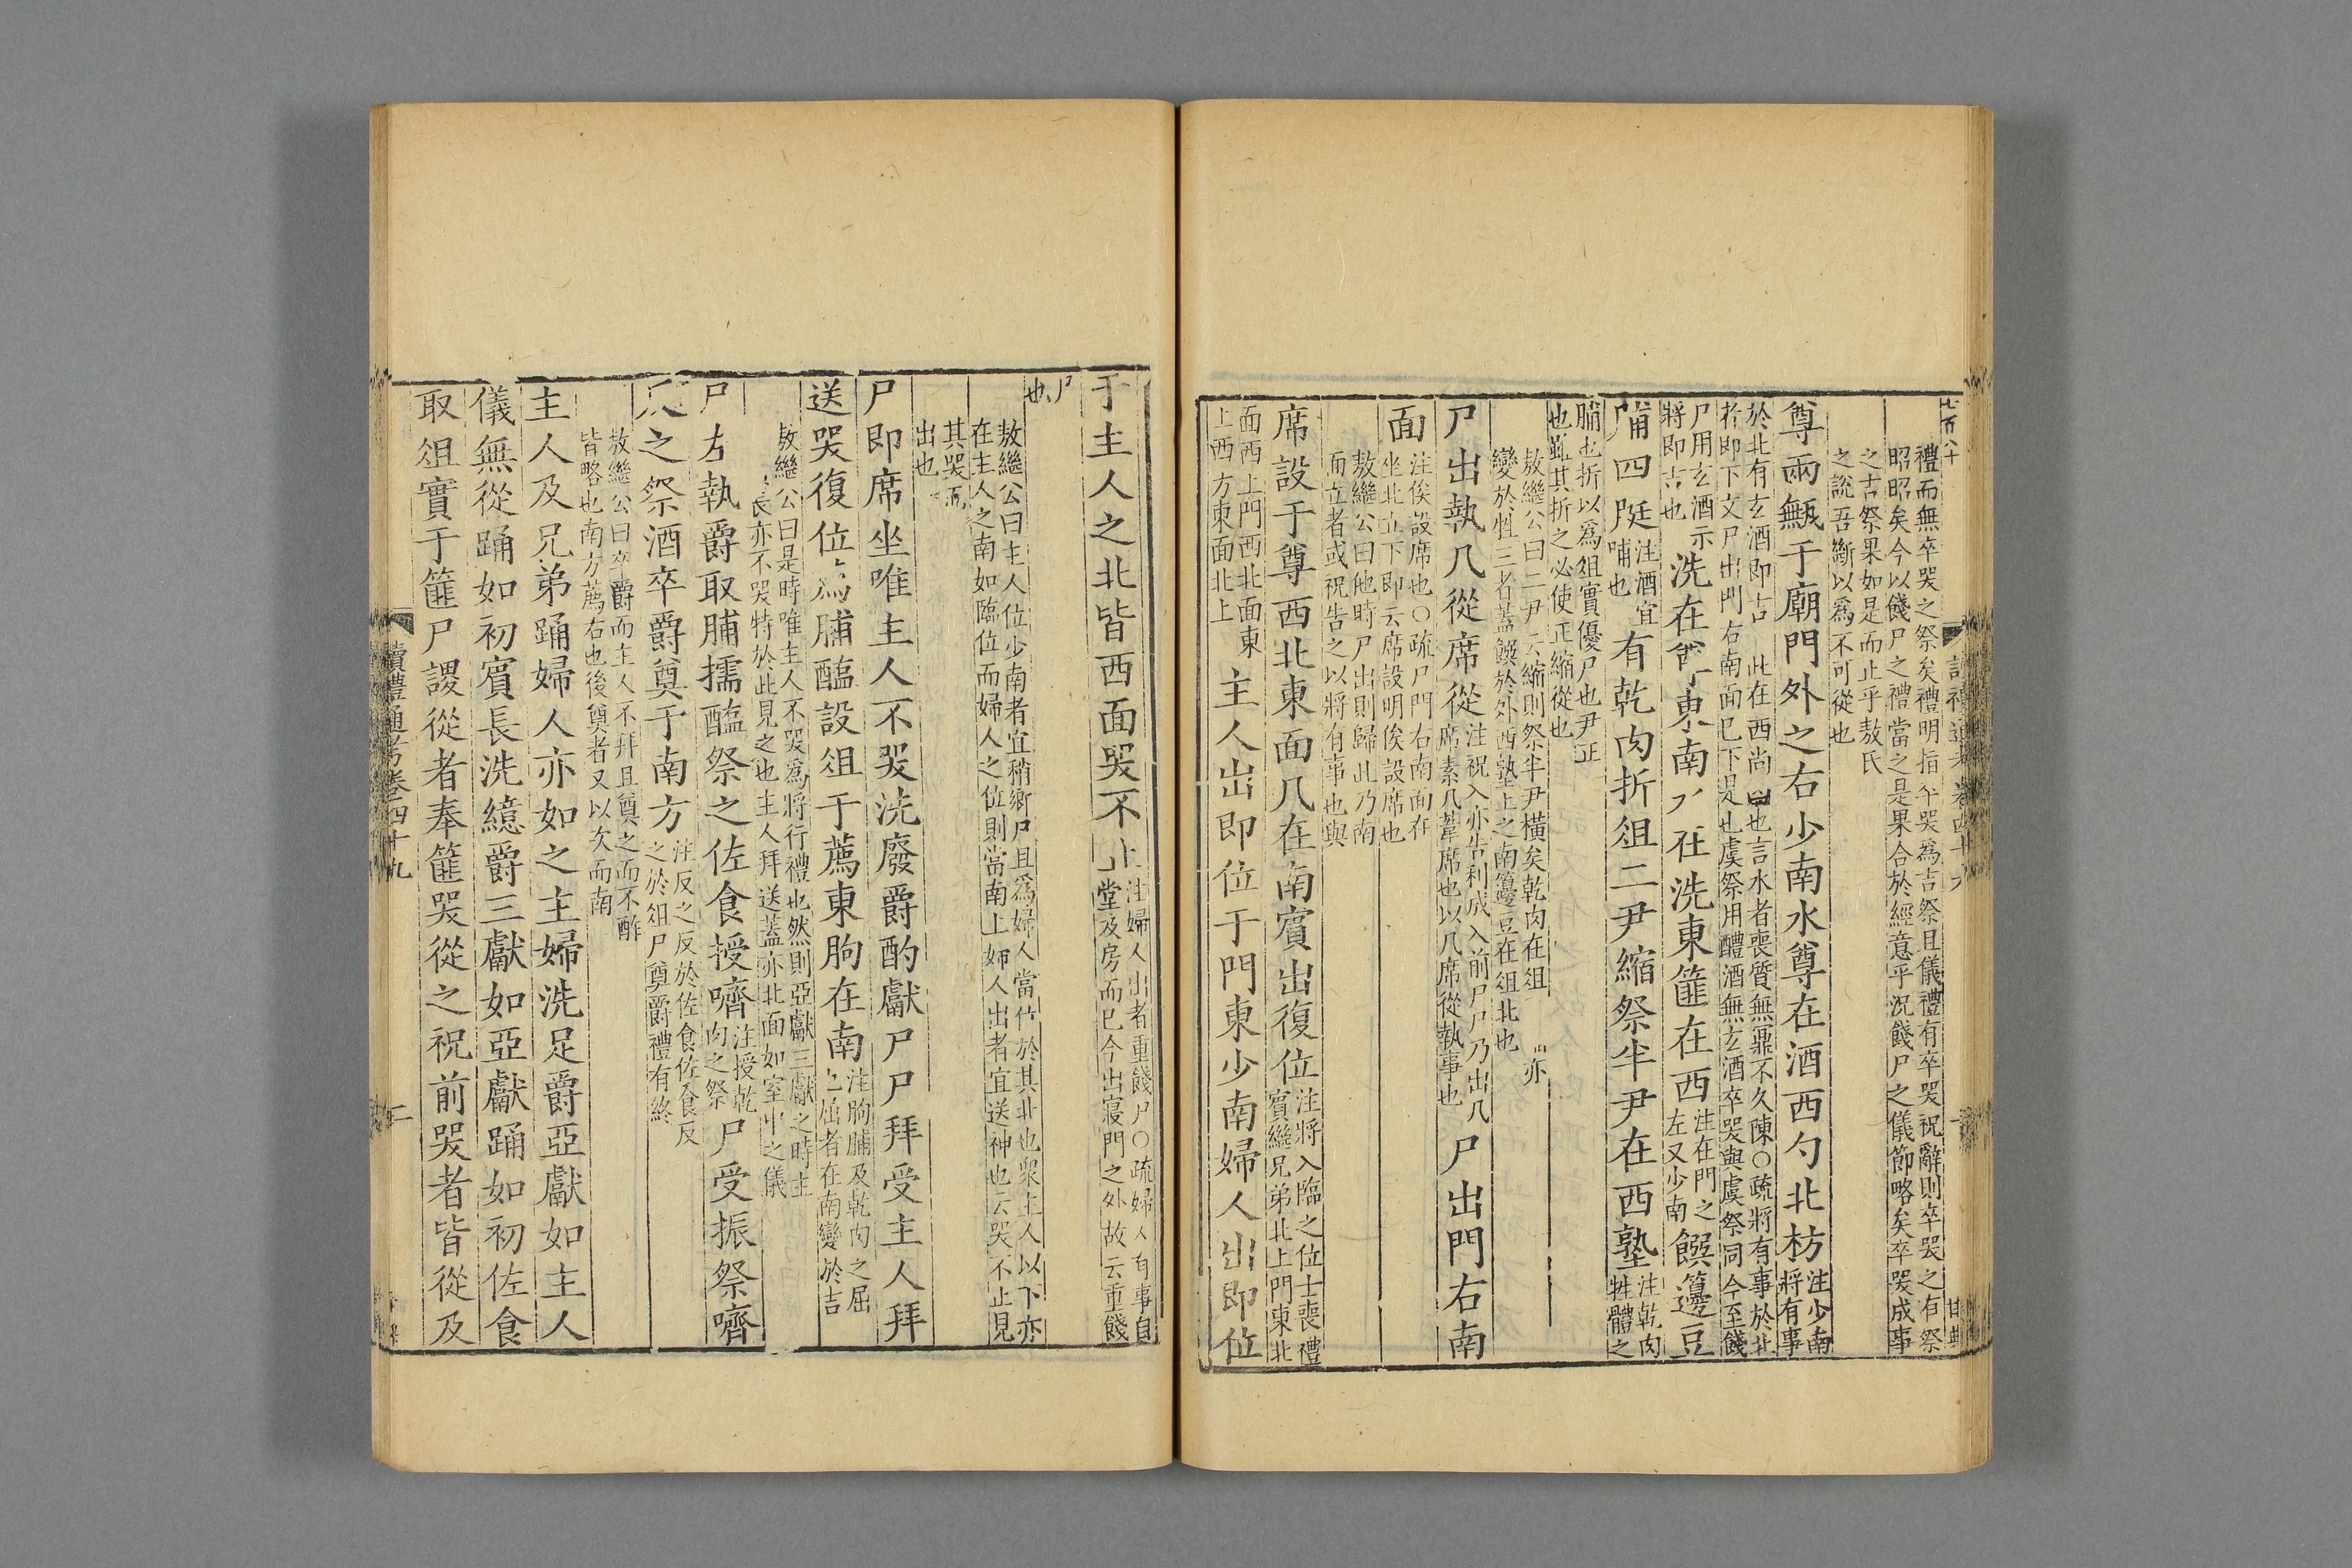 七百八十
禮而無卒哭之祭矣禮明指卒哭為吉祭且儀禮有卒哭祝辭則卒哭之有祭
昭昭矣今以餞尸之禮當之是果合於經意乎況餞尸之儀節略矣卒哭成事
之吉祭果如是而止乎敖氏
之說吾斷以為不可從也
尊兩甒于廟門外之右少南水尊在酒西勺北枋注少南將有事
於北有玄酒即吉也此在西尚凶也言水者喪質無鼏不久陳○疏將有事於北
者即下文尸出門右南面已下是也虞祭用醴酒無玄酒卒哭與虞祭同今至餞
尸用玄酒示將即吉也洗在尊東南水在洗東篚在西注在門之左又少南饌籩豆
脯四脡注酒宜脯也有乾肉折俎二尹縮祭半尹在西塾注乾肉牲體之
脯也折以為俎實優尸也尹正
也雖其折之必使正縮從也
敖繼公曰二尹云縮則祭半尹橫矣乾肉在俎亦
變於牲三者蓋饌於外西塾上之南籩豆在俎北也
尸出執几從席從注祝入亦告利成入前尸尸乃出几席素几葦席也以几席從執事也尸出門右南
面注俟設席也○疏尸門右南面在坐北立下即云席設明俟設席也
敖繼公曰他時尸出則歸此乃南
面立者或祝告之以將有事也與
席設于尊西北東面几在南賓出復位注將入臨之位士喪禮賓繼兄弟北上門東北
面西上門西北面東上西方東面北上主人出即位于門東少南婦人出即位
于主人之北皆西面哭不止注婦人出者重餞尸○疏婦人有事自堂及房而已今出寢門之外故云重餞
尸也
敖繼公曰主人位少南者宜稍鄉尸且為婦人當位於其北也眾主人以下亦
在主人之南如臨位而婦人之位則當南上婦人出者宜送神也云哭不止見
其哭而
出也
尸即席坐唯主人不哭洗廢爵酌獻尸尸拜受主人拜
送哭復位薦脯醢設俎于薦東朐在南注朐脯及乾肉之屈也屈者在南變於吉
敖繼公曰是時唯主人不哭為將行禮也然則亞獻三獻之時主
長亦不哭特於此見之也主人拜送蓋亦北面如室中之儀
尸左執爵取脯擩醢祭之佐食授嚌注授乾肉之祭尸受振祭嚌
反之祭酒卒爵奠于南方注反之反於佐食佐食反之於俎尸奠爵禮有終
敖繼公曰卒爵而主人不拜且奠之而不酢
皆略也南方薦右也後奠者又以次而南
主人及兄弟踊婦人亦如之主婦洗足爵亞獻如主人
儀無從踊如初賓長洗繶爵三獻如亞獻踊如初佐食
取俎實于篚尸謖從者奉篚哭從之祝前哭者皆從及
讀禮通考卷四十九
二